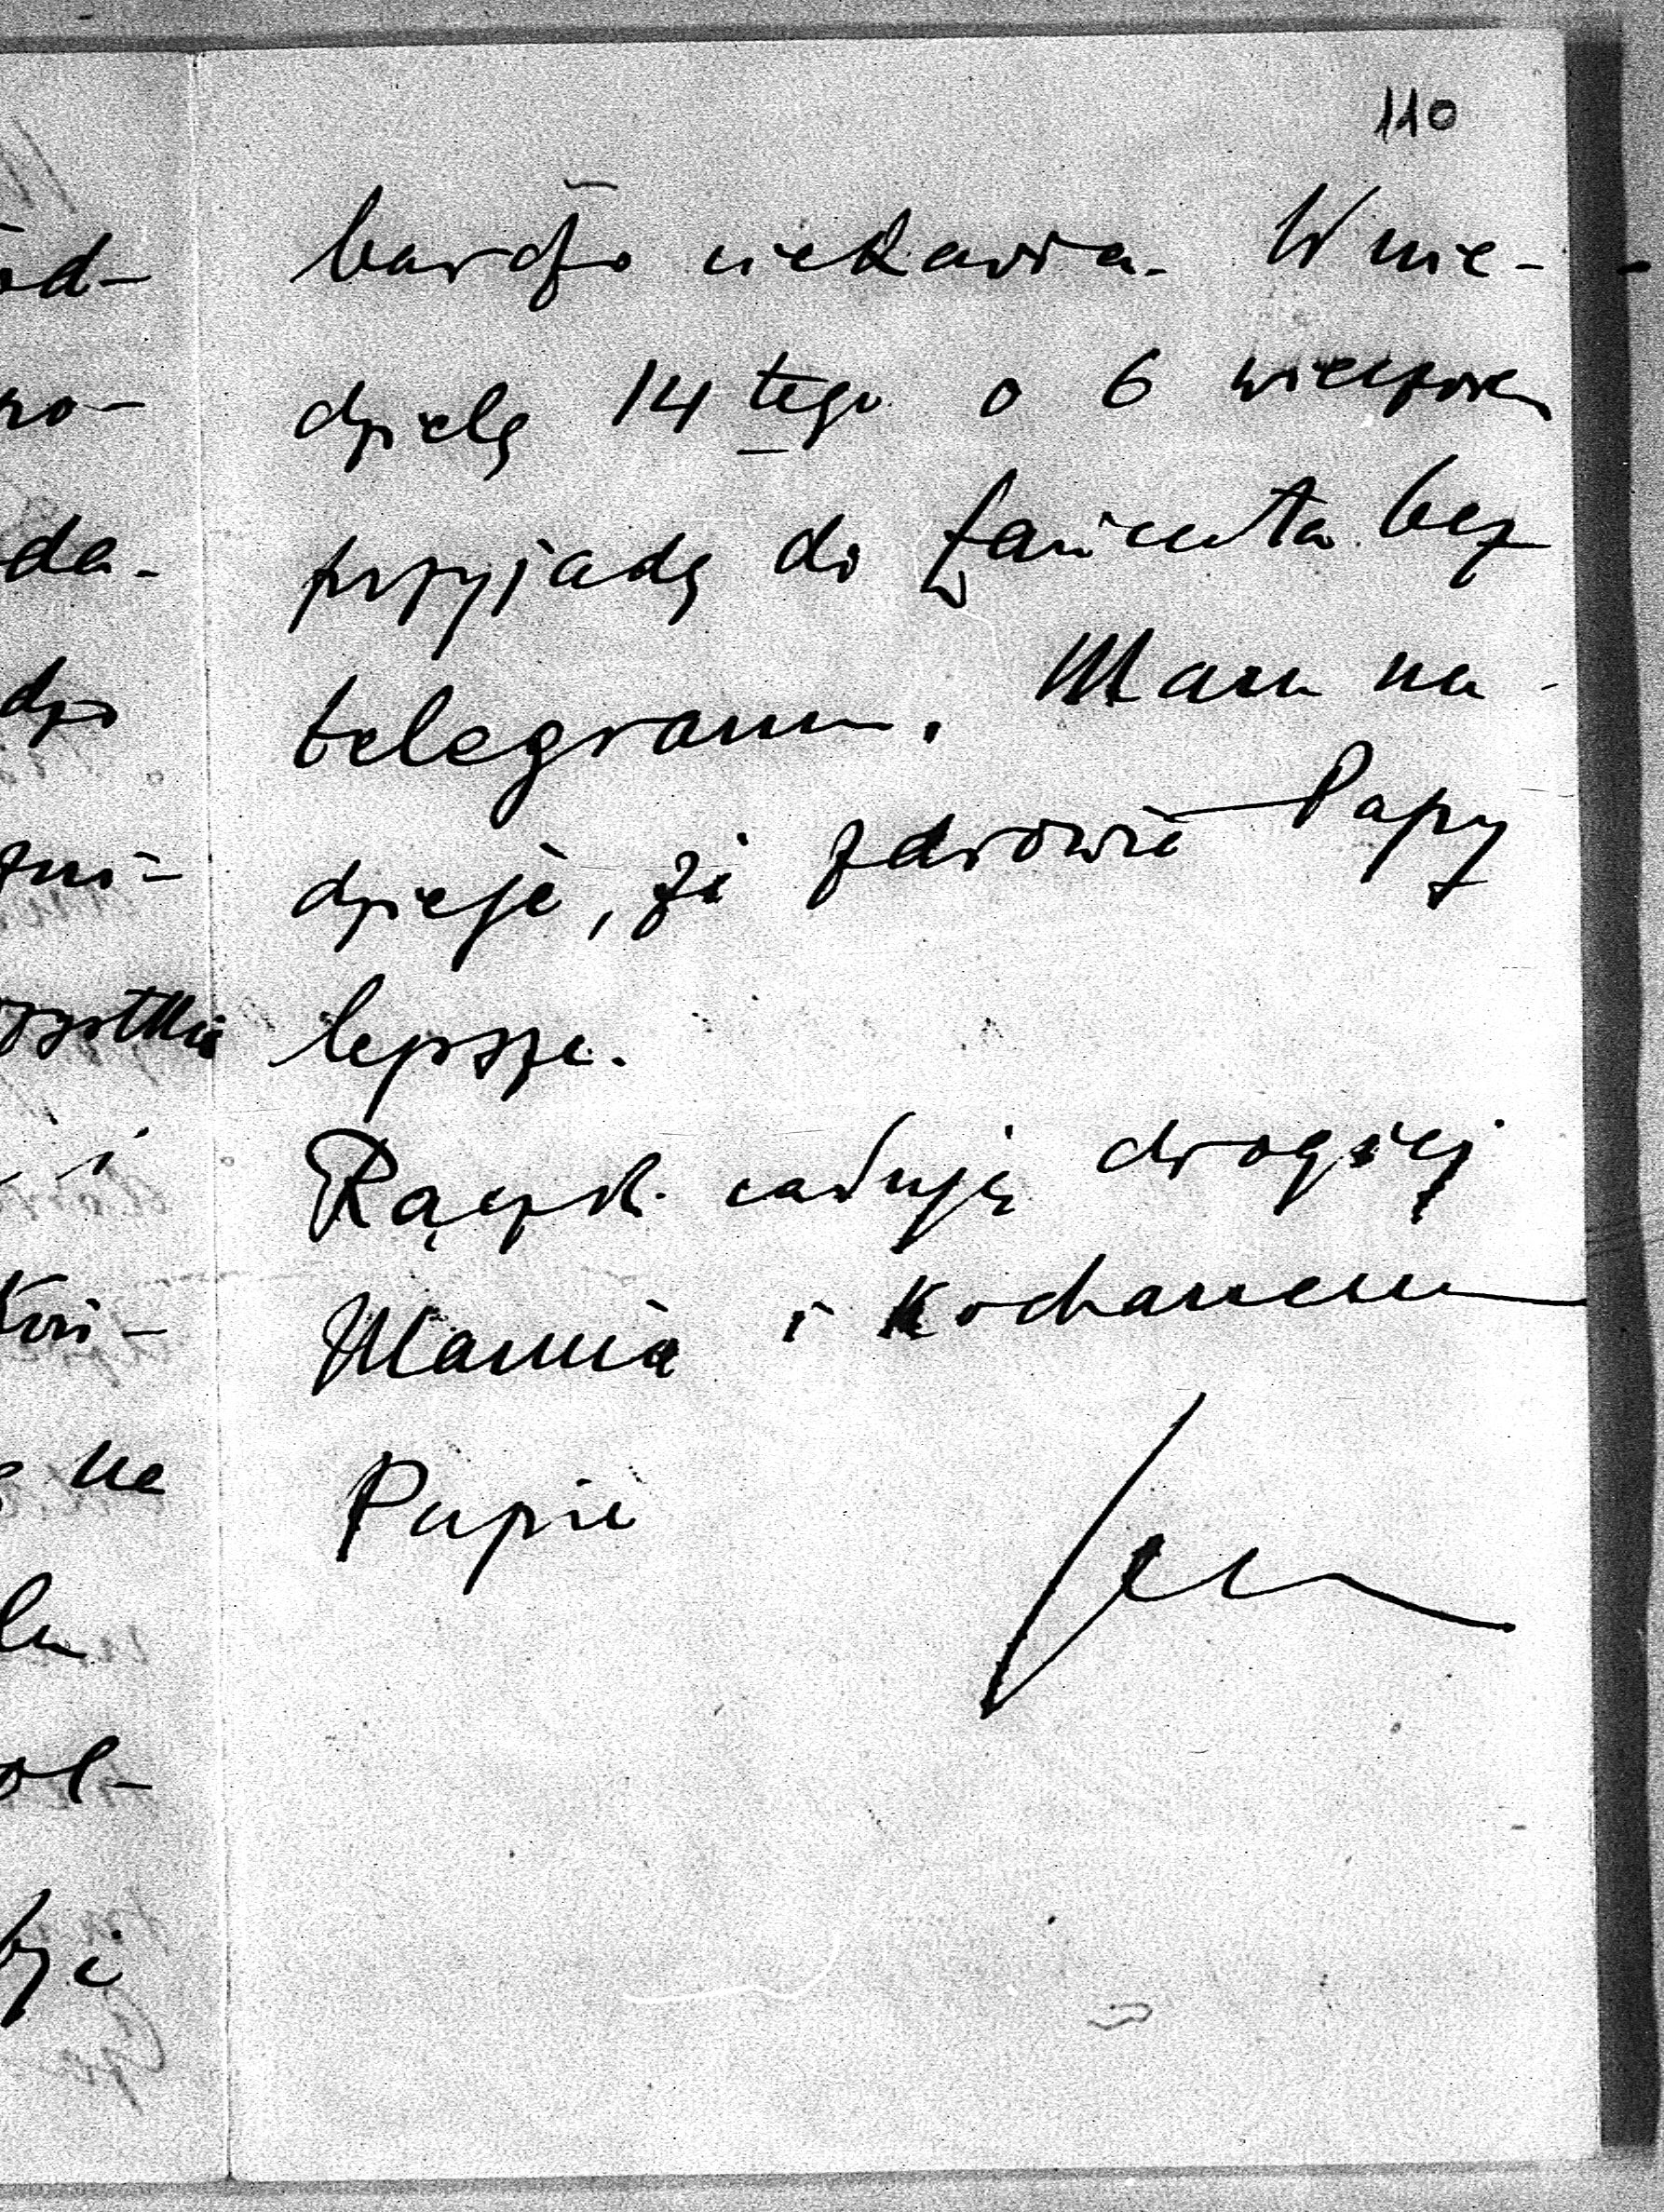 110
bardzo ciekawa. W nie-
dzielę 14 tego o 6 wieczorem
przyjadę do Łańcuta bez
telegramu. Mam na-
dzieje, że zdrowie Papy
lepsze.
Rączki całuję drogiej
Mamie i Kochanemu
Papie
od-
no-
da-
dzo
zni-
i
Koń-
na